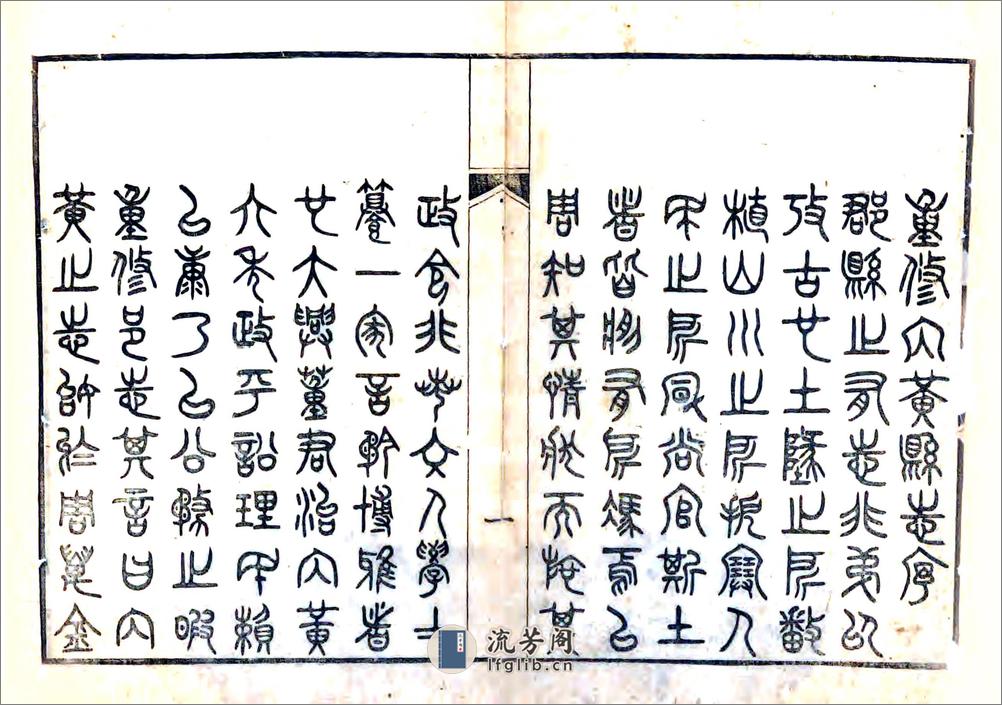 重修內黃縣志序
郡縣之有志非弟以
攷古也土地之所
植山川之所寶人
民之所風尚官斯土
者皆將有所馮焉以
周知其情狀而施其
政令非文人學士
纂一家言博雅者
也大興董君治內黃
六年政平訟理民賴
以康乃以公之暇
重修邑志其言曰內
黃之志於周金
一
流芳阁
lfglib.cn